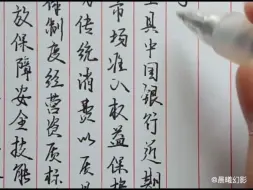 工具中国银行近期
市场准入权益保护
传统消费以质
体制度经营资质标
放保障安全技能
@晨曦幻影